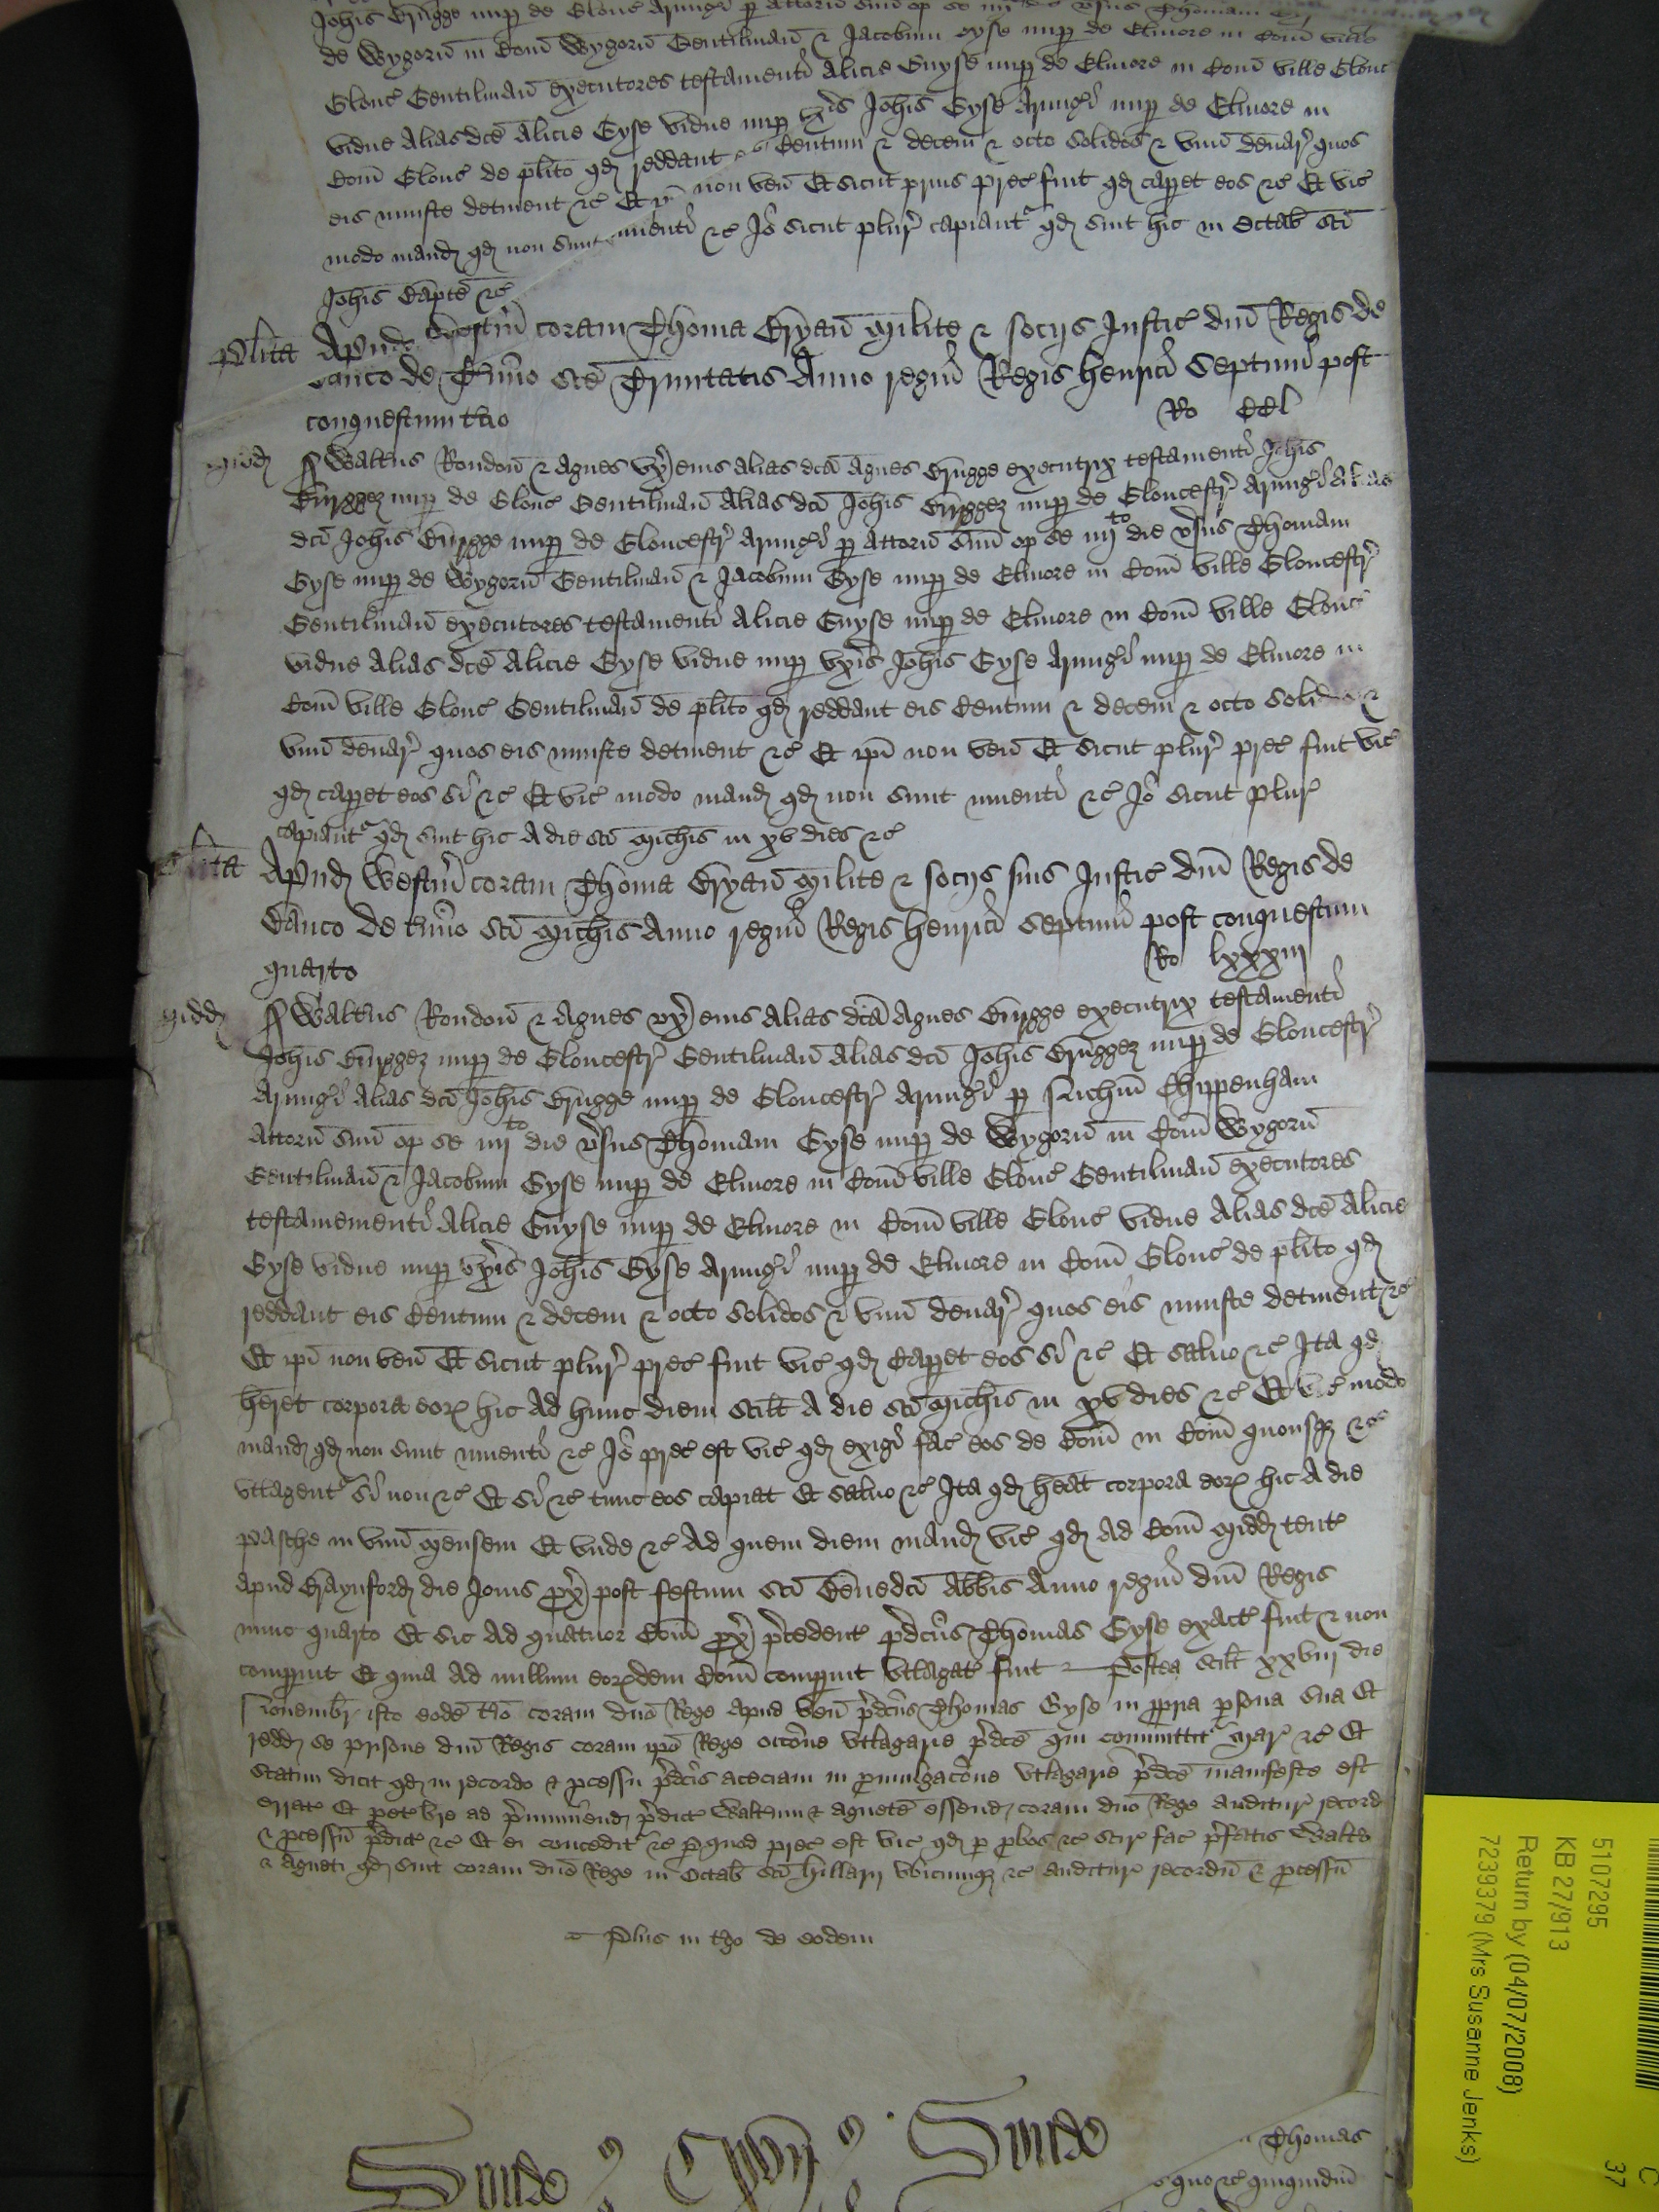 Joħis Brugge nup de Glouc Armigi p attorn suu op se iiij die vsus Thomam
de Wygorn in Com Wygorn Gentilman & Jacobum Gyse nup de Elmore in Com ville
Glouc Gentilman executores testamenti Alicie Guyse nup de Elmore in Com ville Glouc
vidue Alias dce Alicie Gyse vidue nup uxis Joħis Gyse Armigi nup de Elmore in
Com Glouc de plito qd reddant eis Centum & decem & octo solidos & vnu denar quos
eis iniuste detinent &c Et ipi non ven Et sicut prius prec fuit qd capet eos &c Et vic
modo mand qd non sunt inuenti &c Jo sicut plur capiant qd sint hic in Octab sci
Joħis Bapte &c
Plita Apud Westm coram Thoma Bryan Milite & socijs Justic dni Regis de
Banco de Tmino sce Trinitatis Anno regni Regis Henrici Septimi post
conquestum tcio Ro CCl
Midd Waltus Rondon & Agnes vx eius alias dca Agnes Brugge executrix testamenti Joħis
Bruggez nup de Glouc Gentilman Alias dci Joħis Bruggez nup de Gloucestr Armigi Alias
dci Joħis Brugge nup de Gloucestr Armigi p attorn suu op se iiijto die vsus Thomam
Gyse nup de Wygorn Gentilman & Jacobum Gyse nup de Elmore in Com ville Gloucestr
Gentilman executores testamenti Alicie Guyse nup de Elmore in Com ville Glouc
vidue Alias dce Alicie Gyse vidue nup vxis Joħis Gyse Armigi nup de Elmore in
Com ville Glouc Gentilman de plito qd reddant eis Centum & decem & octo solidos &
vnu denar quos eis iniuste detinent &c Et ipi non ven Et sicut plur prec fuit vic
qd capet eos si &c Et vic modo mand qd non sunt inuenti &c Jo sicut plur
capiant qd sint hic A die sci Michis in xv dies &c
Plita Apud Westm coram Thoma Bryan Milite & socijs suis Justic dni Regis de
Banco de tmino sci Michis Anno regni Regis Henrici Septimi post conquestum
quarto Ro lxxxiii
Midd Waltus Rondon & Agnes vx eius alias dca Agnes Brugge executrix testamenti
Joħis Bruggez nup de Gloucestr Gentilman alias dci Joħis Bruggez nup de Gloucestr
Armigi Alias dci Joħis Brugge nup de Gloucestr Armigi p Richm Chippenham
Attorn suu op se iiijto die vsus Thomam Gyse nup de Wygorn in Com Wygorn
Gentilman & Jacobum Gyse nup de Elmore in Com ville Glouc Gentilman executores
testamementi Alicie Guyse nup de Elmore in Com ville Glouc vidue Alias dce Alicie
Gyse vidue nup vxis Joħis Gyse Armigi nup de Elmore in Com Glouc de plito qd
reddant eis Centum & decem & octo solidos & vnu denar quos eis iniuste detinent &c
Et ipi non ven Et sicut plur prec fuit vic qd Capet eos si &c Et saluo &c Ita qd
heret corpora eor hic Ad hunc diem scilt A die sci Michis in xv dies &c Et vic modo
mand qd non sunt inuenti &c Jo prec est vic qd exigi fac eos de Com in Com quousqz &c
vtlagent si non &c Et si &c tunc eos capiat Et saluo &c Ita qd heat corpora eor hic A die
pasche in vnu Mensem Et vnde &c Ad quem diem mand vic qd Ad Com Midd tent
apud Braynford die Jouis px post festum sci Benedci Abbis Anno regni dni Regis
nunc quarto Et sic Ad quatuor Com px pcedent pdcus Thomas Gyse exact fuit & non
compuit Et quia Ad nullum eordem Com compuit vtlagat fuit Postea scilt xxviij die
Nouembr isto eode tmo coram dno Rege Apud ven pdcus Thomas Gyse in ppria psona sua Et
redd se prisone dni Regis coram ipo Rege occone vtlagarie pdce qui committit Mar &c Et
statim dicit qd in recordo & pcessu pdcis aceciam in pmulgacone vtlagarie pdce manifeste est
errat Et pet bre ad pmuniend pdict Waltum & Agnete essend coram dno Rege auditur record
& pcessu pdict &c Et ei concedit &c p quod prec est vic qd p pbos &c scir fac pfatis Walto
& Agneti qd sint coram dno Rege in Octab sci Hillarij vbicumqz &c auditur recordu & pcessu
Plus in tgo de eodem
Thomas
5107295
KB 27/913
Return by (04/07/2008)
7239379 (Mrs Susanne Jenks)
C
37